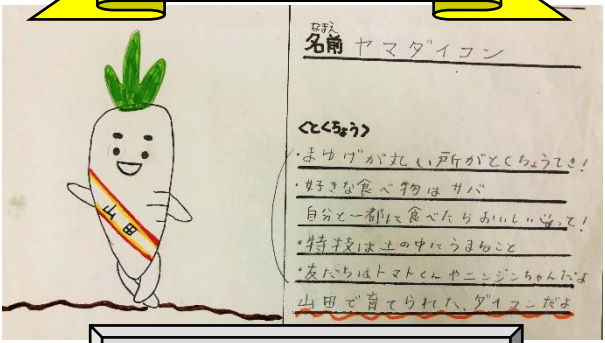 山田
なまえ
名前 ヤマダイコン
<とくちょう>
・まゆげが丸い所がとくちょうてき!
・好きな食べ物はサバ
自分と一都に食べたらおいしいって!
・特技は土の中にうまること
・友だちはトマトくんやニンジンちゃんだよ
山田で育てられた、ダイコンだよ